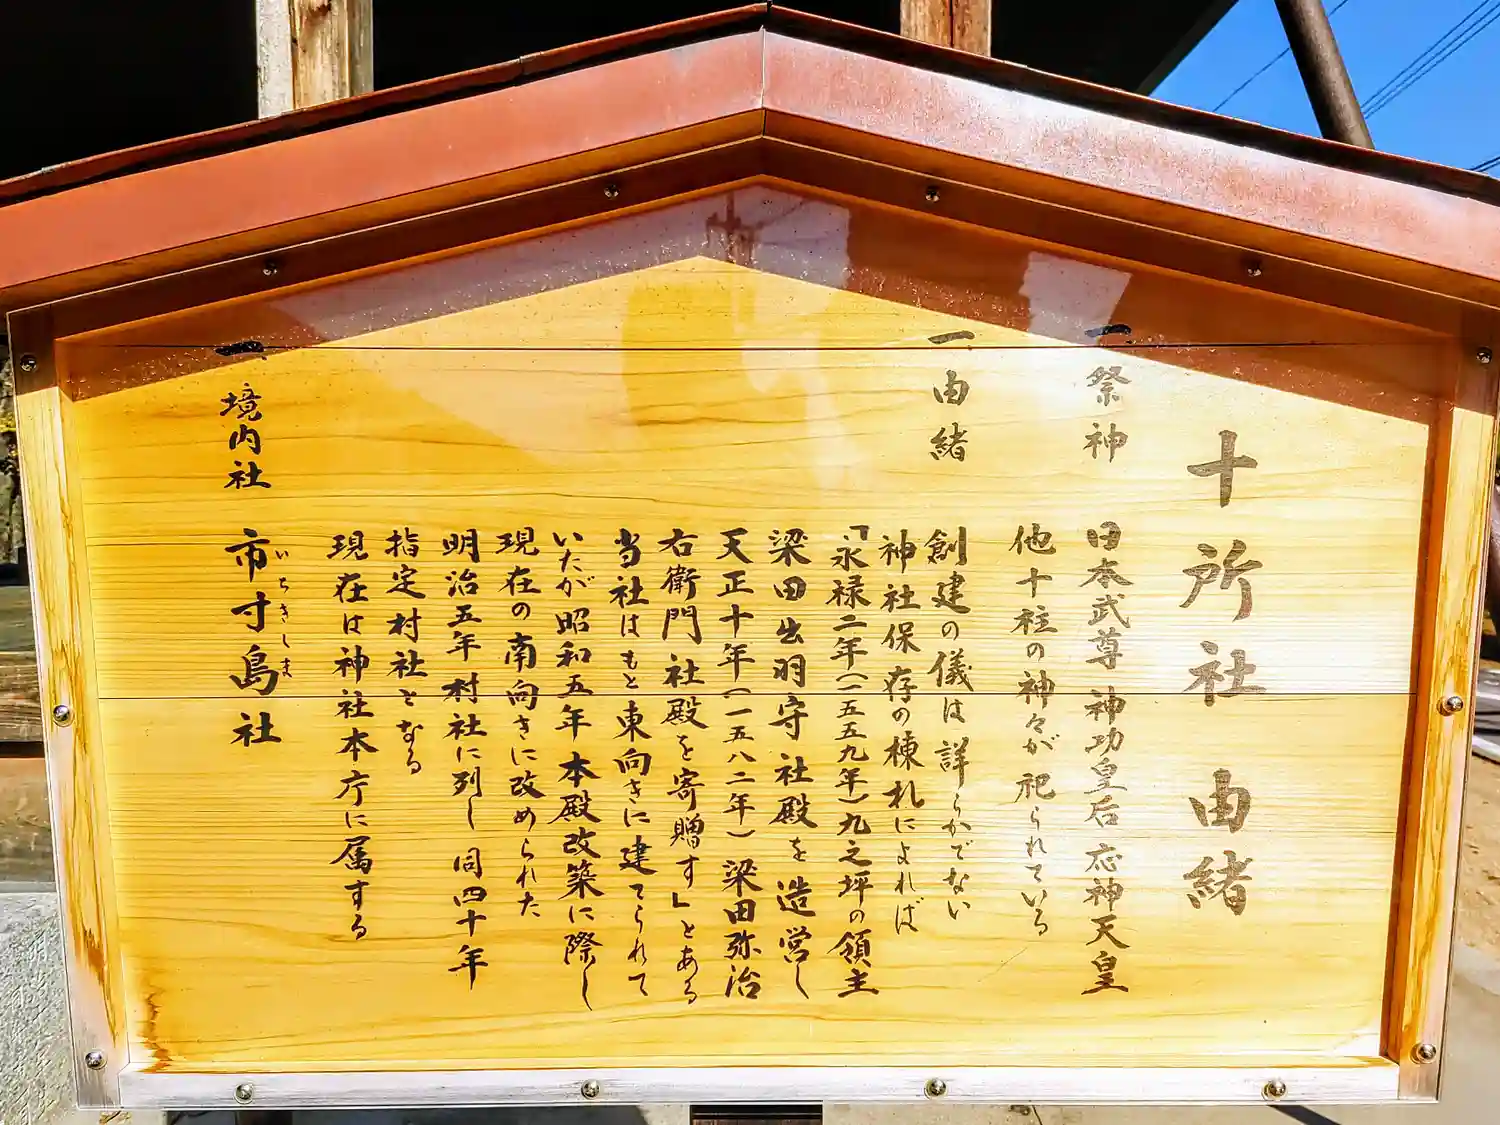 十所社 由緒
一、祭神
日本武尊 神功皇后 応神天皇
他十柱の神々が祀られている
一、由緒
創建の儀は詳らかでない
神社保存の棟札によれば
「永禄二年(一五五九年)九之坪の領主
梁田出羽守社殿を造営し
天正十年(一五八二年)梁田弥治
右衛門社殿を寄贈す」とある
当社はもと東向きに建てられて
いたが昭和五年本殿改築に際し
現在の南向きに改められた
明治五年村社に列し同四十年
指定村社となる
現在は神社本庁に属する
一、境内社 市寸島社
いちきしま